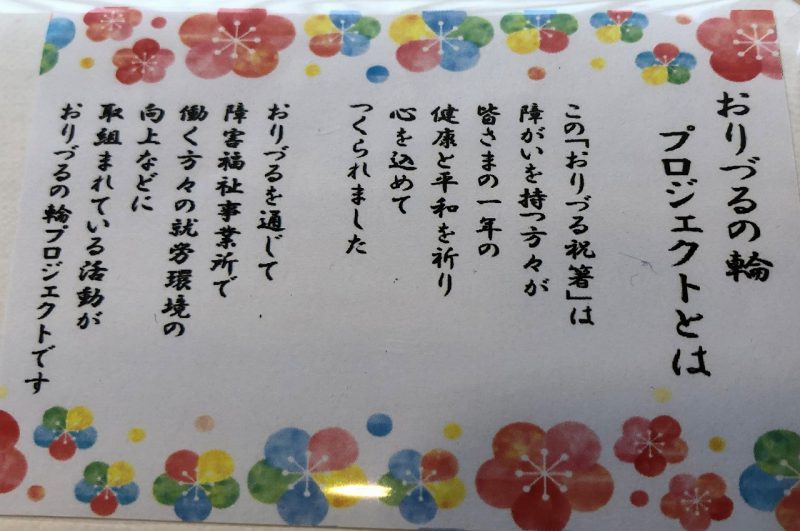 おりづるの輪
プロジェクトとは
この「おりづる祝箸」は
障がいを持つ方々が
皆さまの一年の
健康と平和を祈り
心を込めて
つくられました
おりづるを通じて
障害福祉事業所で
働く方々の就労環境の
向上などに
取組まれている活動が
おりづるの輪プロジェクトです